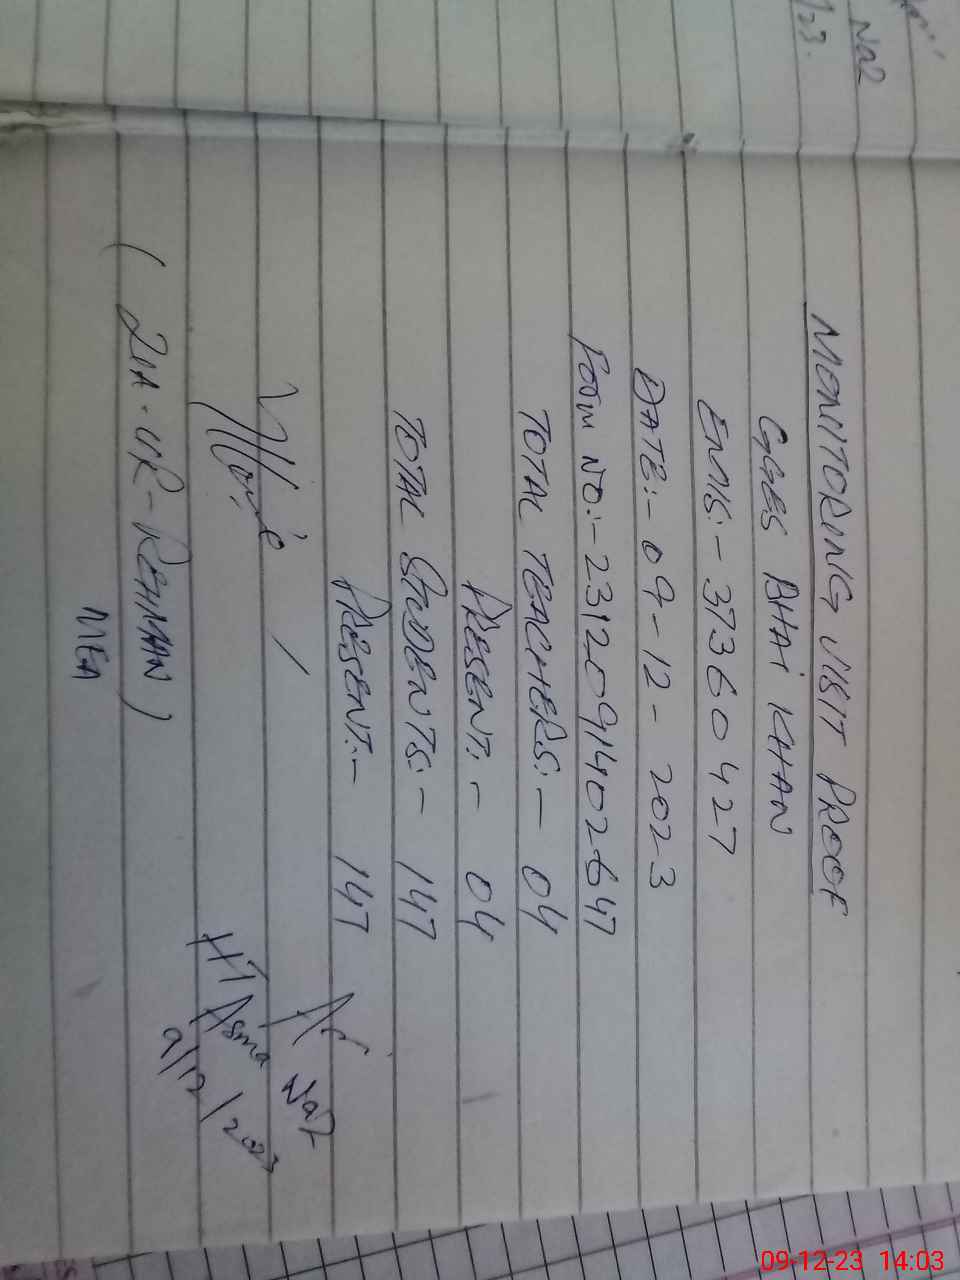 MONITORING VISIT PROOF
GGES BHAI KHAN
EMIS:- 37360427
DATE:- 09-12-2023
Form NO:- 231209140264​7
TOTAL TEACHERS:- 04
PRESENT:- 04
TOTAL STUDENTS:- 147
PRESENT:- 147
(ZIA-UR-REHMAN)
MEA
HT
Asma Naz
9/12/2023
Naz
/23.
09-12-23 14:03